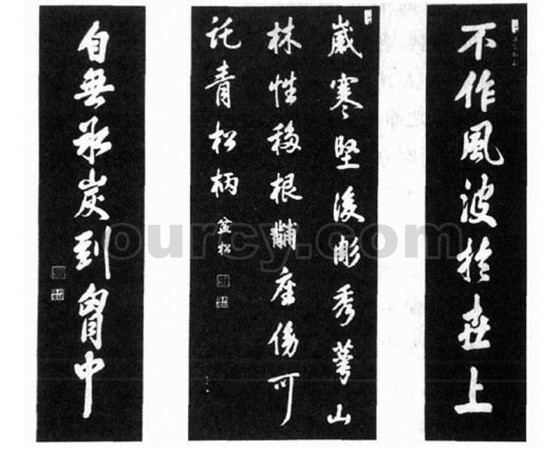 不作風波於世上
歲寒堅後彫秀萼山
林性移根黼座傍可
託青松柄 盆松
自無冰炭到胷中
ourcy.com